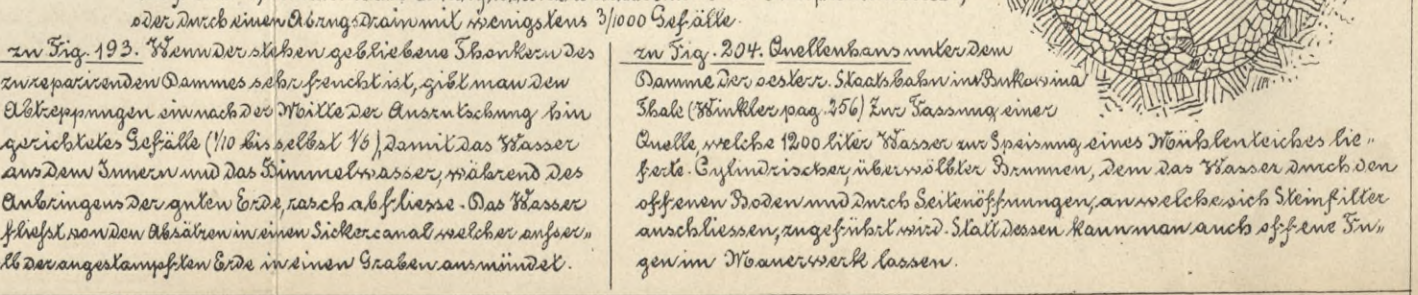 oder durch einen Abzugsdrain mit wenigstens 3/1000 Gefälle.
zu Fig. 193. Wenn der stehen gebliebene Thonkern des
zu reparirenden Dammes sehr feucht ist, gibt man den
Abtreppungen ein nach der Mitte der Ausrutschung hin
gerichtetes Gefälle (1/10 bis selbst 1/5), damit das Wasser
aus dem Innern und das Himmelwasser, während des
Anbringens der guten Erde, rasch abfliesse. Das Wasser
fliefst von den Absätzen in einen Sickercanal welcher aufser„
lb der angestampften Erde in einen Graben ausmündet.
zu Fig. 204. Quellenhaus unter dem
Damme der oesterr. Staatsbahn im Bukowina
Thale (Winkler pag. 256) Zur Fassung einer
Quelle, welche 1200 liter Wasser zur Speisung eines Mühlenteiches lie„
ferte. Cylindrischer, überwölbter Brunnen, dem das Wasser durch den
offenen Boden und durch Seitenöffnungen, an welche sich Steinfilter
anschliessen, zugeführt wird. Statt dessen kann man auch offene Fu„
gen im Mauerwerk lassen.